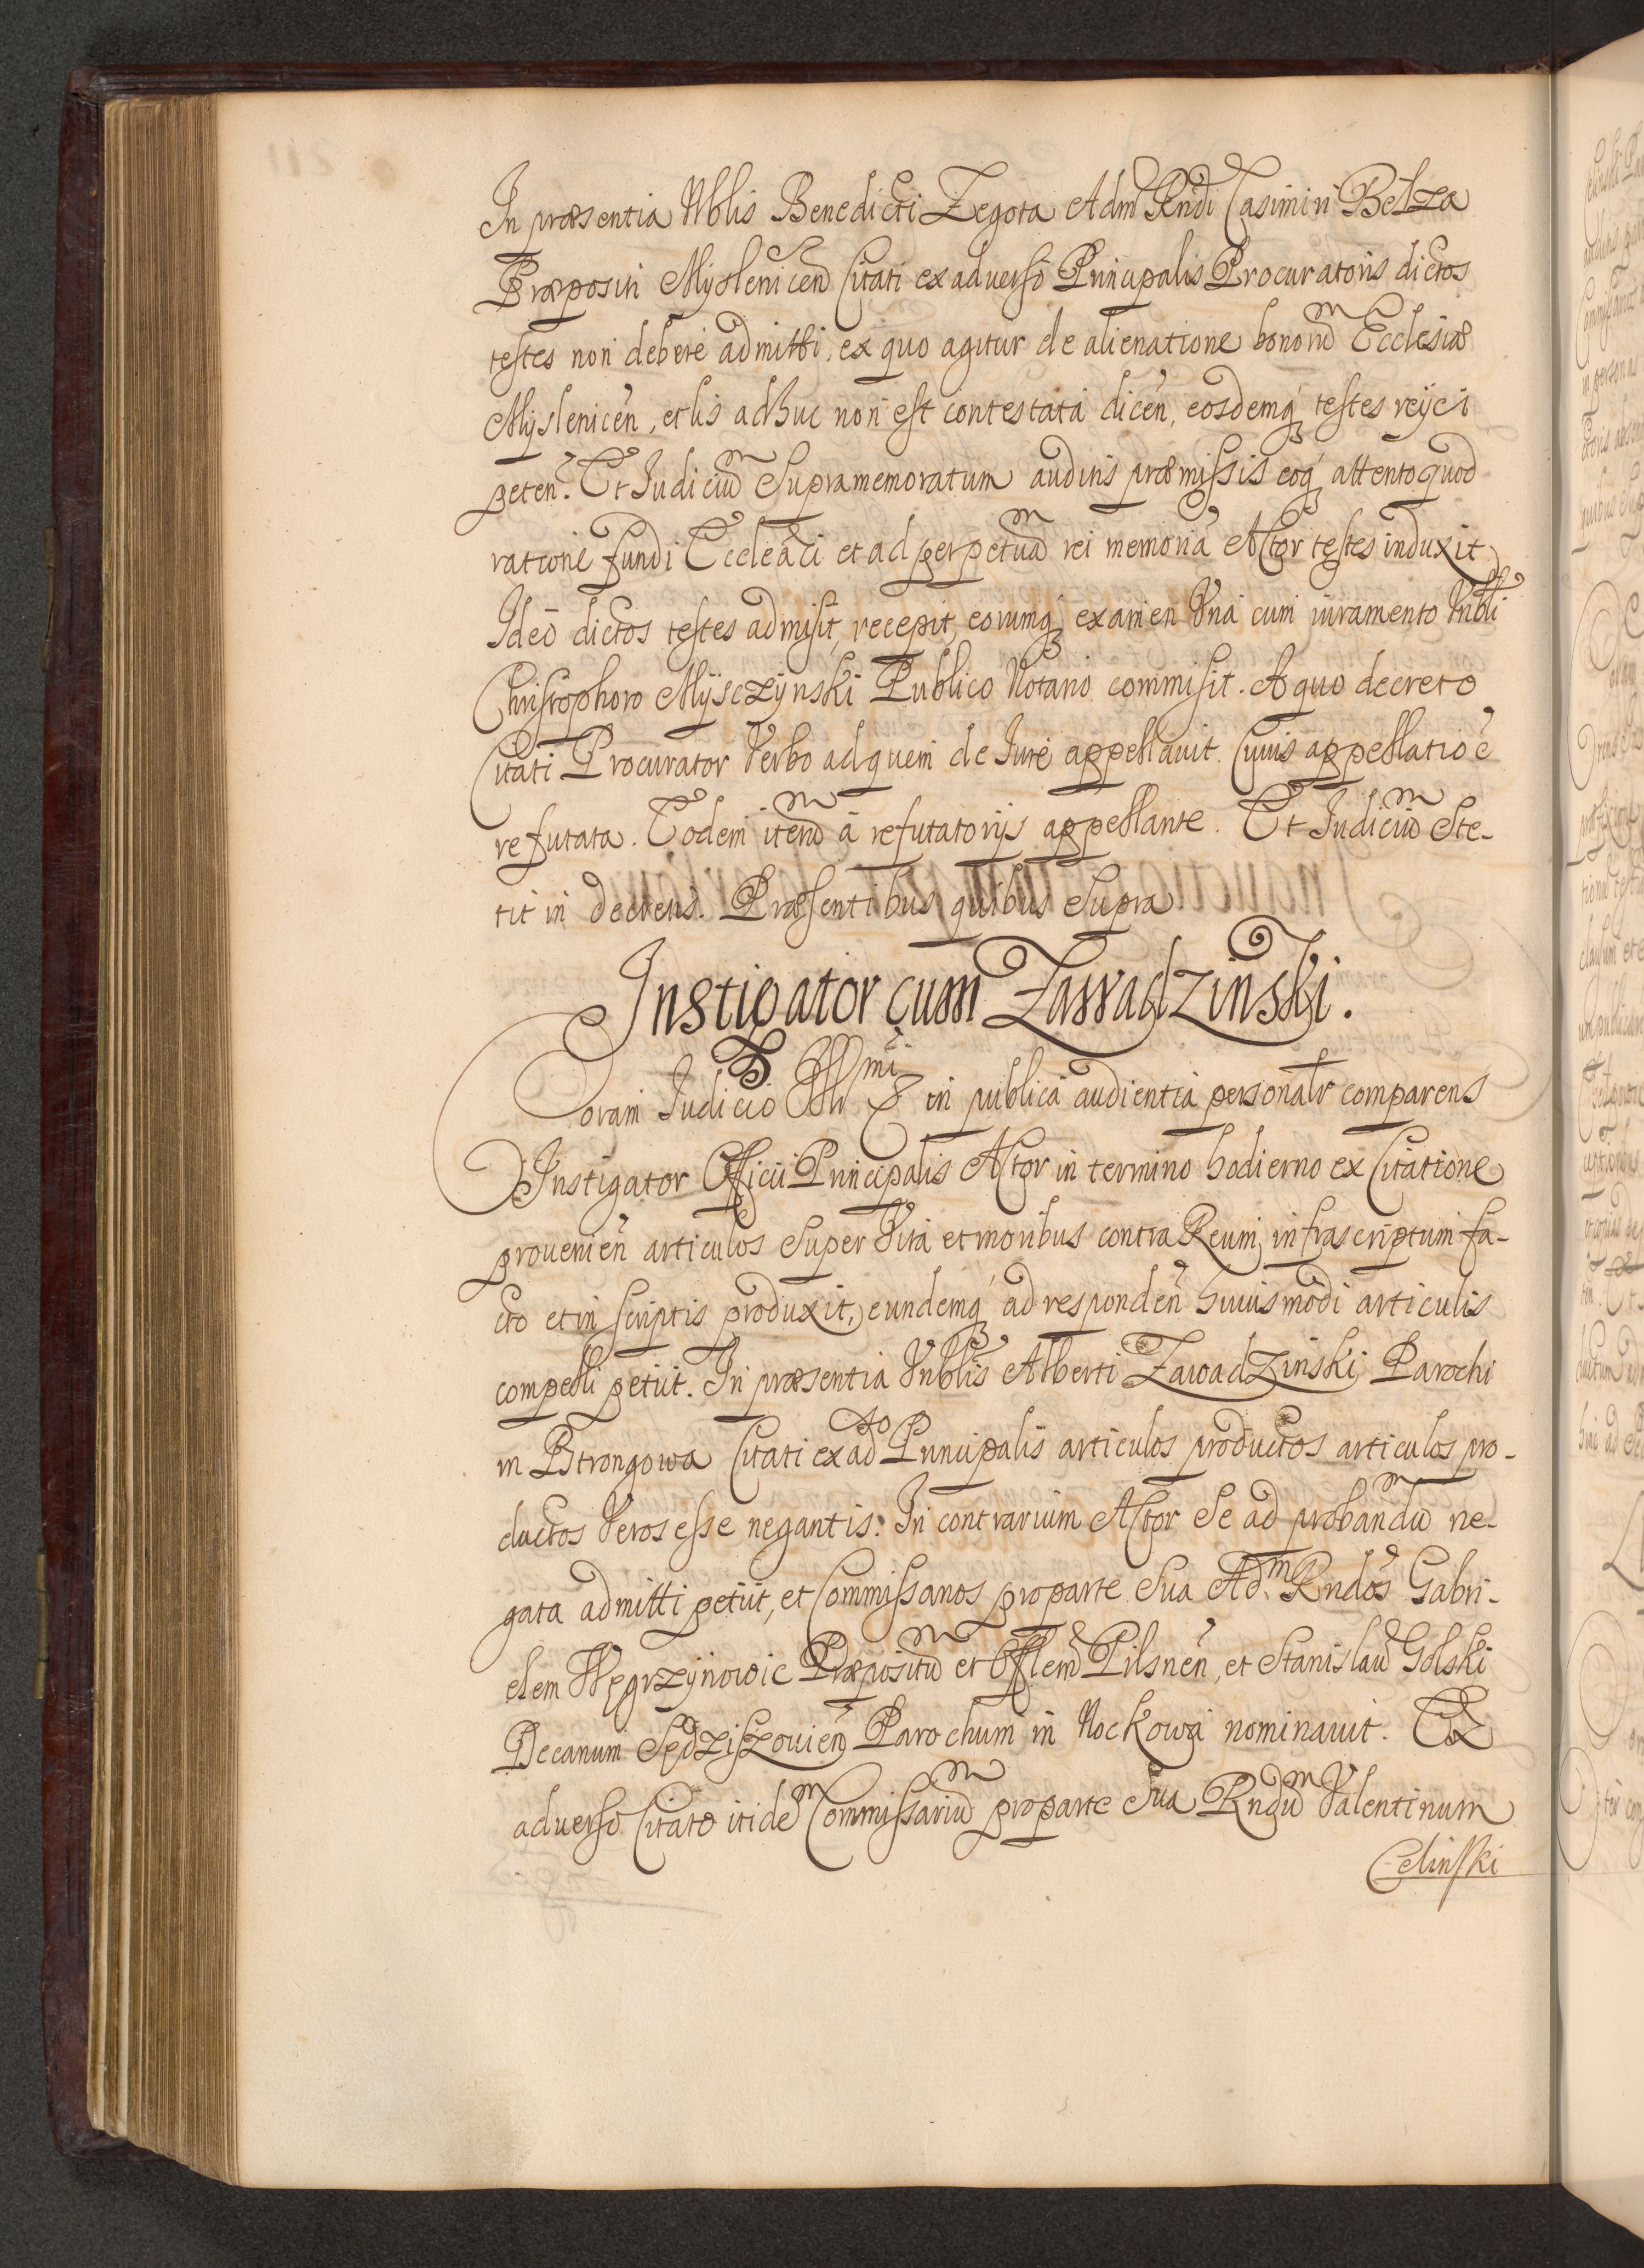 In præsentia Nblis Benedicti Zegota Adm Rndi Casimiri Betza
Præpositi Myslenicen Citati ex adverso Principalis Procuratoris dictos
testes non debere admitti, ex quo agitur de alienatione bonorū Ecclesiæ
Myslenicen̄, et lis adhuc non est contestata dicen̄, eosdemq́ testes reijci
peten̄. Et Iudiciū Supramemoratum auditis præmissis eoq́ attento quod
ratione fundi Eccleaci et ad perpetuā rei memoriā Actor testes induxit
Ideo dictos testes admisit, recepit, eorumq́ examen Vna cum iuramento Vnbli
Christophoro Myseczynski Publico Notario commisit. A quo decreto
Citati Procurator Verbo ad quem de Iure appellauit. Cuius appellatio ē
refutata. Eodem iterū à refutatorijs appellante. Et Iudiciū Ste-
tit in decretis. Præsentibus quibus Supra.
Instigator cum Zawadzinski.
Coram Iudicio Illmi &c in publica audientia personalr comparens
Instigator Officii Principalis Actor in termino hodierno ex Citatione
prouenien̄ articulos Super Vita et moribus contra Reum infrascriptum fa-
cto et in scriptis produxit, eundemq́ ad responden̄ huiusmodi articulis
compelli petiit. In præsentia Vnblis Alberti Zawadzinski Parochi
in Bstrongowa Citati ex adso Principalis articulos productos articulos pro-
ductos Veros esse negantis. In contrarium Actor Se ad probandū ne-
gata admitti petiit, et Commissarios pro parte Sua Adm Rndos Gabri-
elem Węgrzynowic Præpositū et Offlem Pilsnen̄, et Stanislaū Golski
Decanum Sędziszouien̄ Parochum in Nockowa nominauit. Ex
aduerso Citato itidem Commissariū pro parte Sua Rndum Valentinum
Celinski